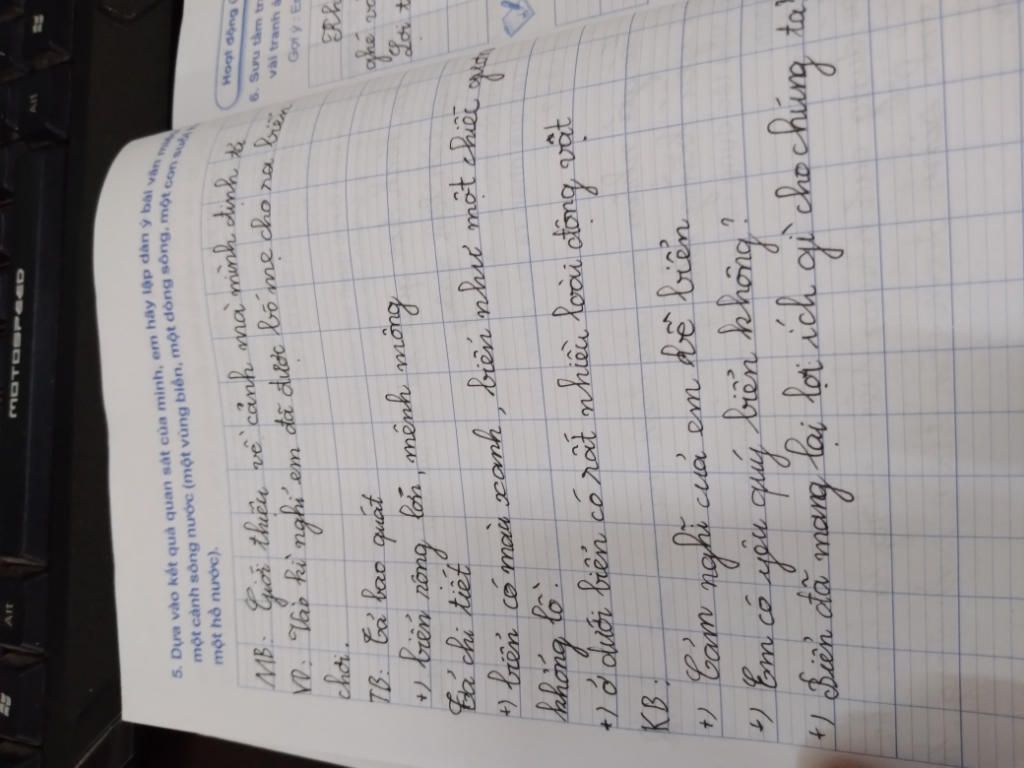 MOTOSPEED
Alt
Alt
5. Dựa vào kết quả quan sát của mình, em hãy lập dàn ý bài văn miêu
một cảnh sông nước (một vùng biển, một dòng sông, một con suối,
một hồ nước).
MB: Giới thiệu về cảnh mà mình định tả
VD: Vào kì nghỉ em đã được bố mẹ cho ra biển
chơi.
TB: Tả bao quát
+) biển rộng lớn, mênh mông
Tả chi tiết
+) biển có màu xanh, biển như một chiếc gương
khổng lồ.
+) ở dưới biển có rất nhiều loài động vật
KB:
+) Cảm nghĩ của em về biển
+) Em có yêu quý biển không?
+) Biển đã mang lại lợi ích gì cho chúng ta?
Hoạt động
6. Sưu tầm tr
vài tranh ả
Gợi ý: E
ghé và
Lợi t